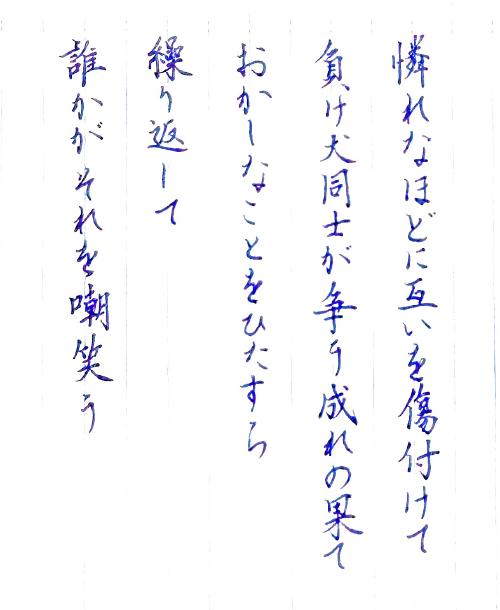 憐れなほどに互いを傷付けて
負け犬同士が争う成れの果て
おかしなことをひたすら
繰り返して
誰かがそれを嘲笑う